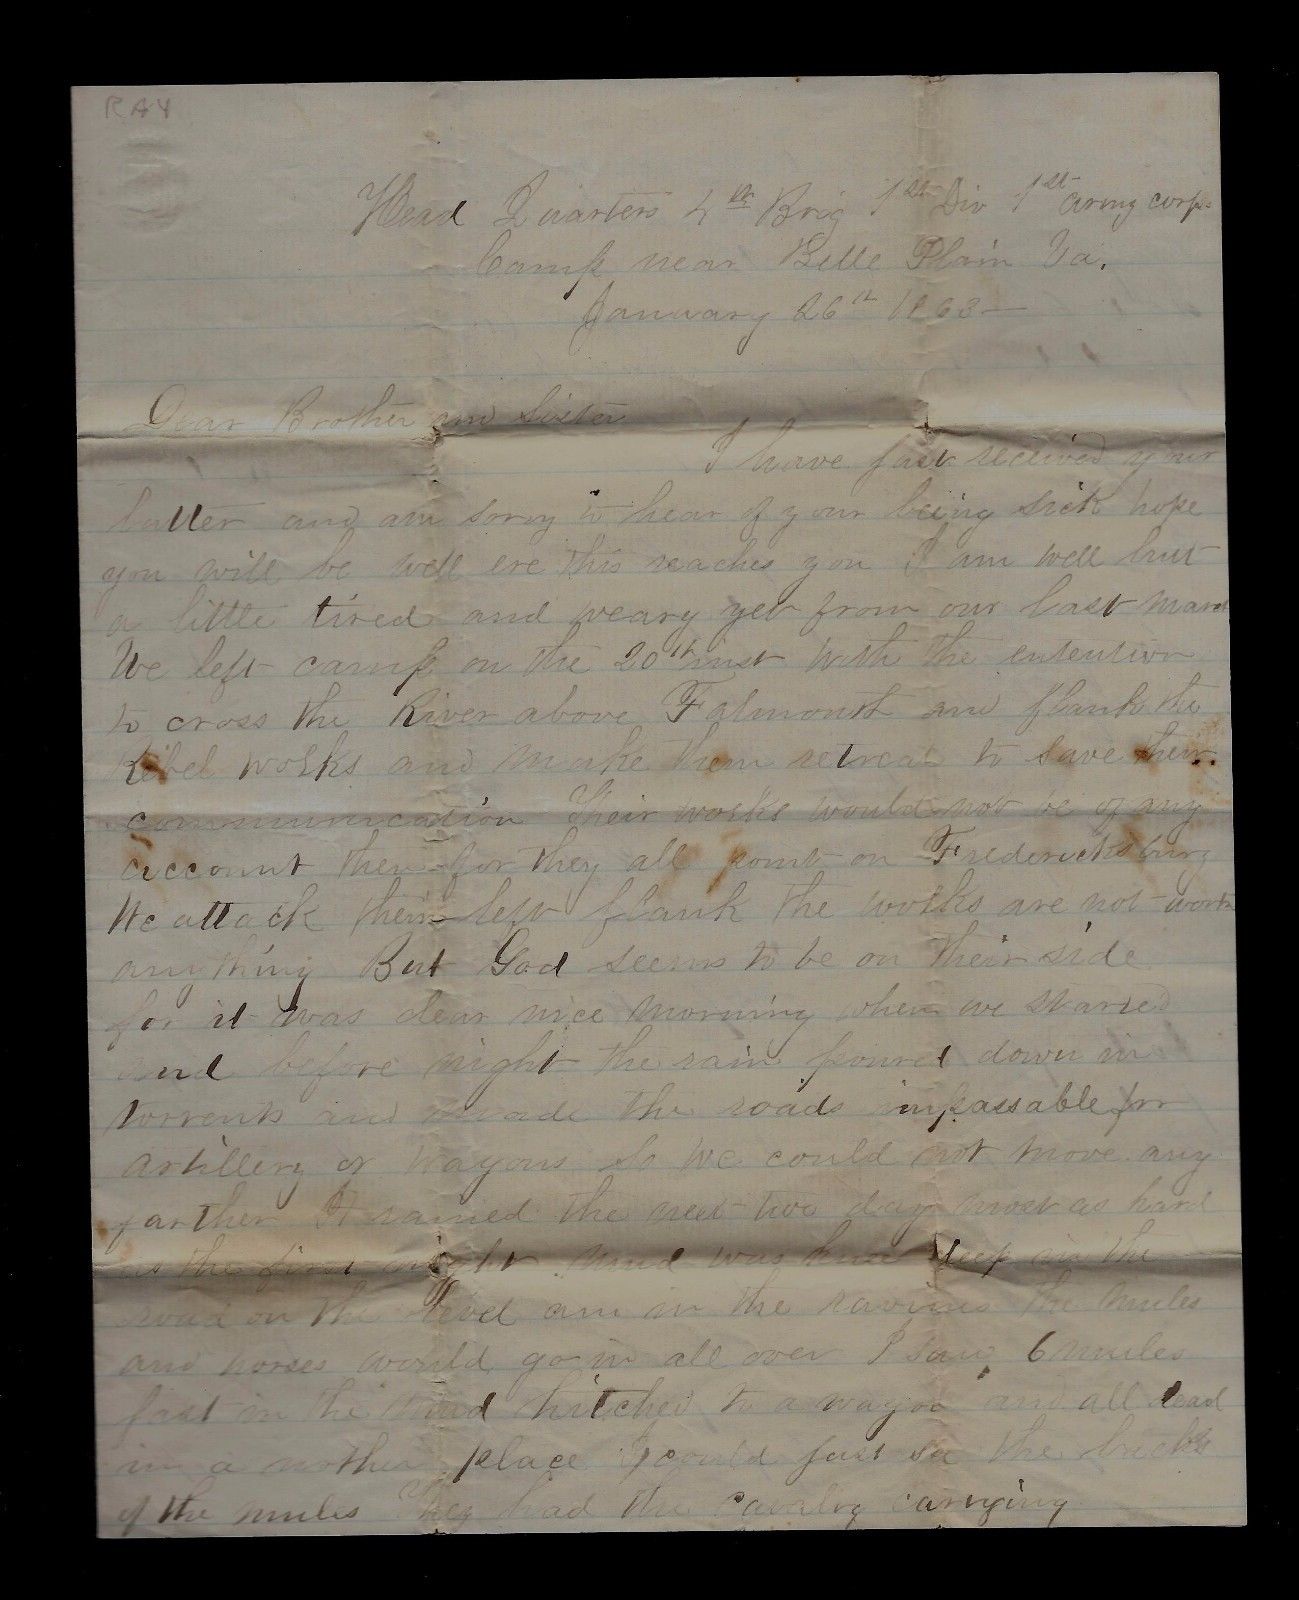 RAY
Head Quarters 4th Brig 1st Div 1st army corps
Camp near Belle Plain Va.
January 26th 1863
Dear Brother and Sister
I have just received your
letter and am sorry to hear of your being sick hope
you will be well ere this reaches you I am well but
a little tired and weary yet from our last march
We left camp on the 20th inst with the entention
to cross the River above Falmouth and flank the
Rebel works and make them retreat to save their
communication Their works would not be of any
account then for they all point on Fredericksburg
We attack their left flank the works are not worth
anything But God seems to be on their side
for it was clear nice morning when we started
and before night the rain poured down in
torrents and made the roads impassable for
artillery or wagons So we could not move any
farther It rained the next two day most as hard
as the first night Mud was knee deep in the
road on the level am in the ravines the mules
and horses would go in all over I saw 6 mules
fast in the mud hitched to a wagon and all dead
in a nother place I could just see the backs
of the mules They had the cavalry carrying